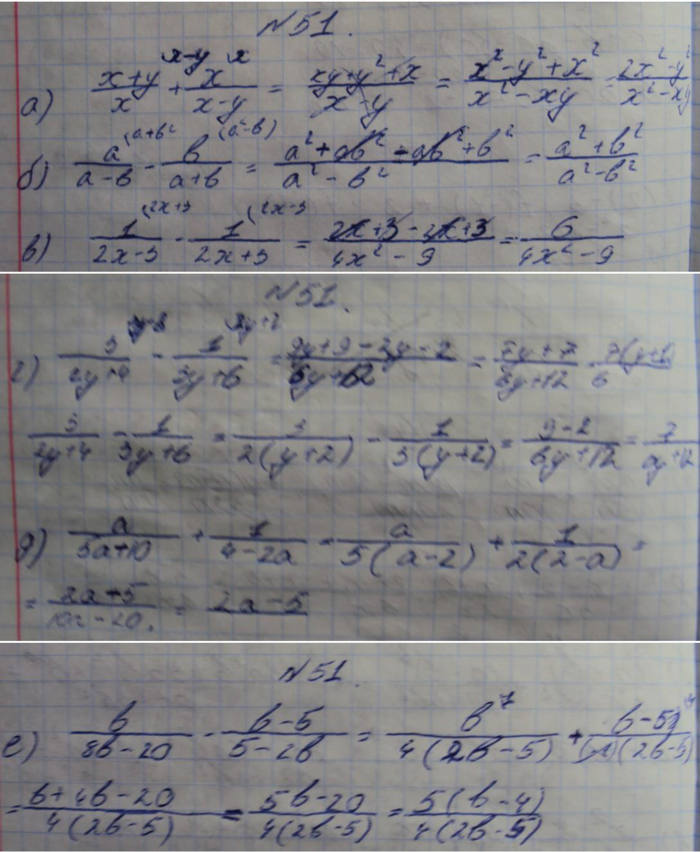 №51.
x-y x
а) (x+y)/x + x/(x-y) = (xy+y²+x)/(x-y) = (x²-y²+x²)/(x²-xy) = (2x²-y²)/(x²-xy)
(a+b² (a-b)
б) a/(a-b) - b/(a+b) = (a²+ab²-ab²+b²)/(a²-b²) = (a²+b²)/(a²-b²)
(2x+3 (2x-3
в) 1/(2x-3) - 1/(2x+3) = (2x+3-2x+3)/(4x²-9) = 6/(4x²-9)
№51.
г) 3/(2y+4) - 1/(3y+6) = (9y+9-2y-2)/(6y+12) = (7y+7)/(6y+12) 7(y+1)/6
3/(2y+4) - 1/(3y+6) = 3/(2(y+2)) - 1/(3(y+2)) = (9-2)/(6y+12) = 7/
д) a/(5a+10) + 1/(4-2a) = a/(5(a-2)) + 1/(2(2-a)) =
= (2a+5)/(10a-20) = 2a-5
№51
е) b/(8b-20) - (b-5)/(5-2b) = b/(4(2b-5)) + (b-5)/((2b-5)
= (b+4b-20)/(4(2b-5)) = (5b-20)/(4(2b-5)) = 5(b-4)/(4(2b-5))